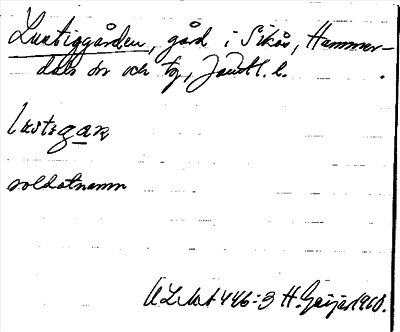 Lustiggården, gård i Sikås, Hammer-
dals sn och tg, Jämtl. l.
lustegaɳ
soldatnamn
ULMA 446:3 H. Geijer 1910.